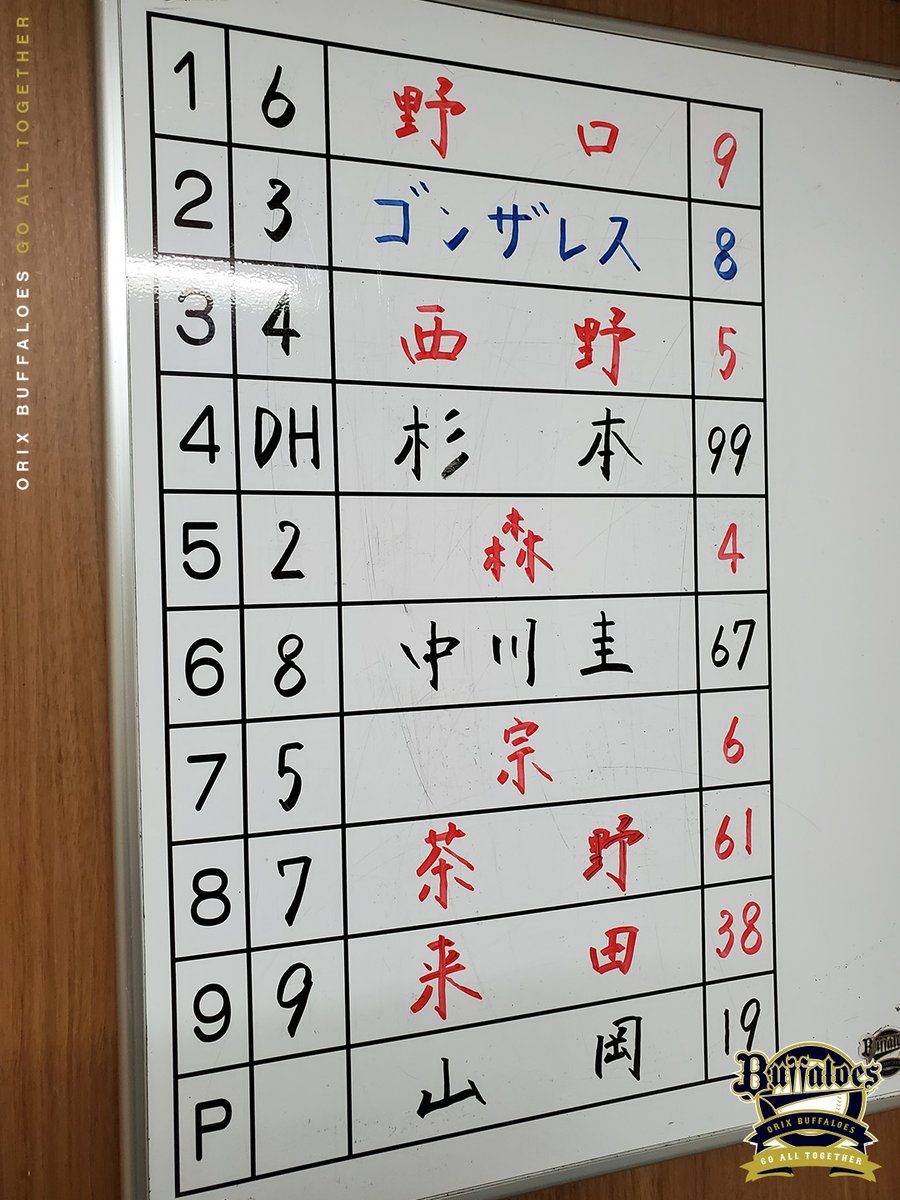 ORIX BUFFALOES GO ALL TOGETHER
1 6 野口 9
2 3 ゴンザレス 8
3 4 西野 5
4 DH 杉本 99
5 2 森 4
6 8 中川圭 67
7 5 宗 6
8 7 茶野 61
9 9 来田 38
P 山岡 19
Buffaloes
ORIX BUFFALOES
GO ALL TOGETHER